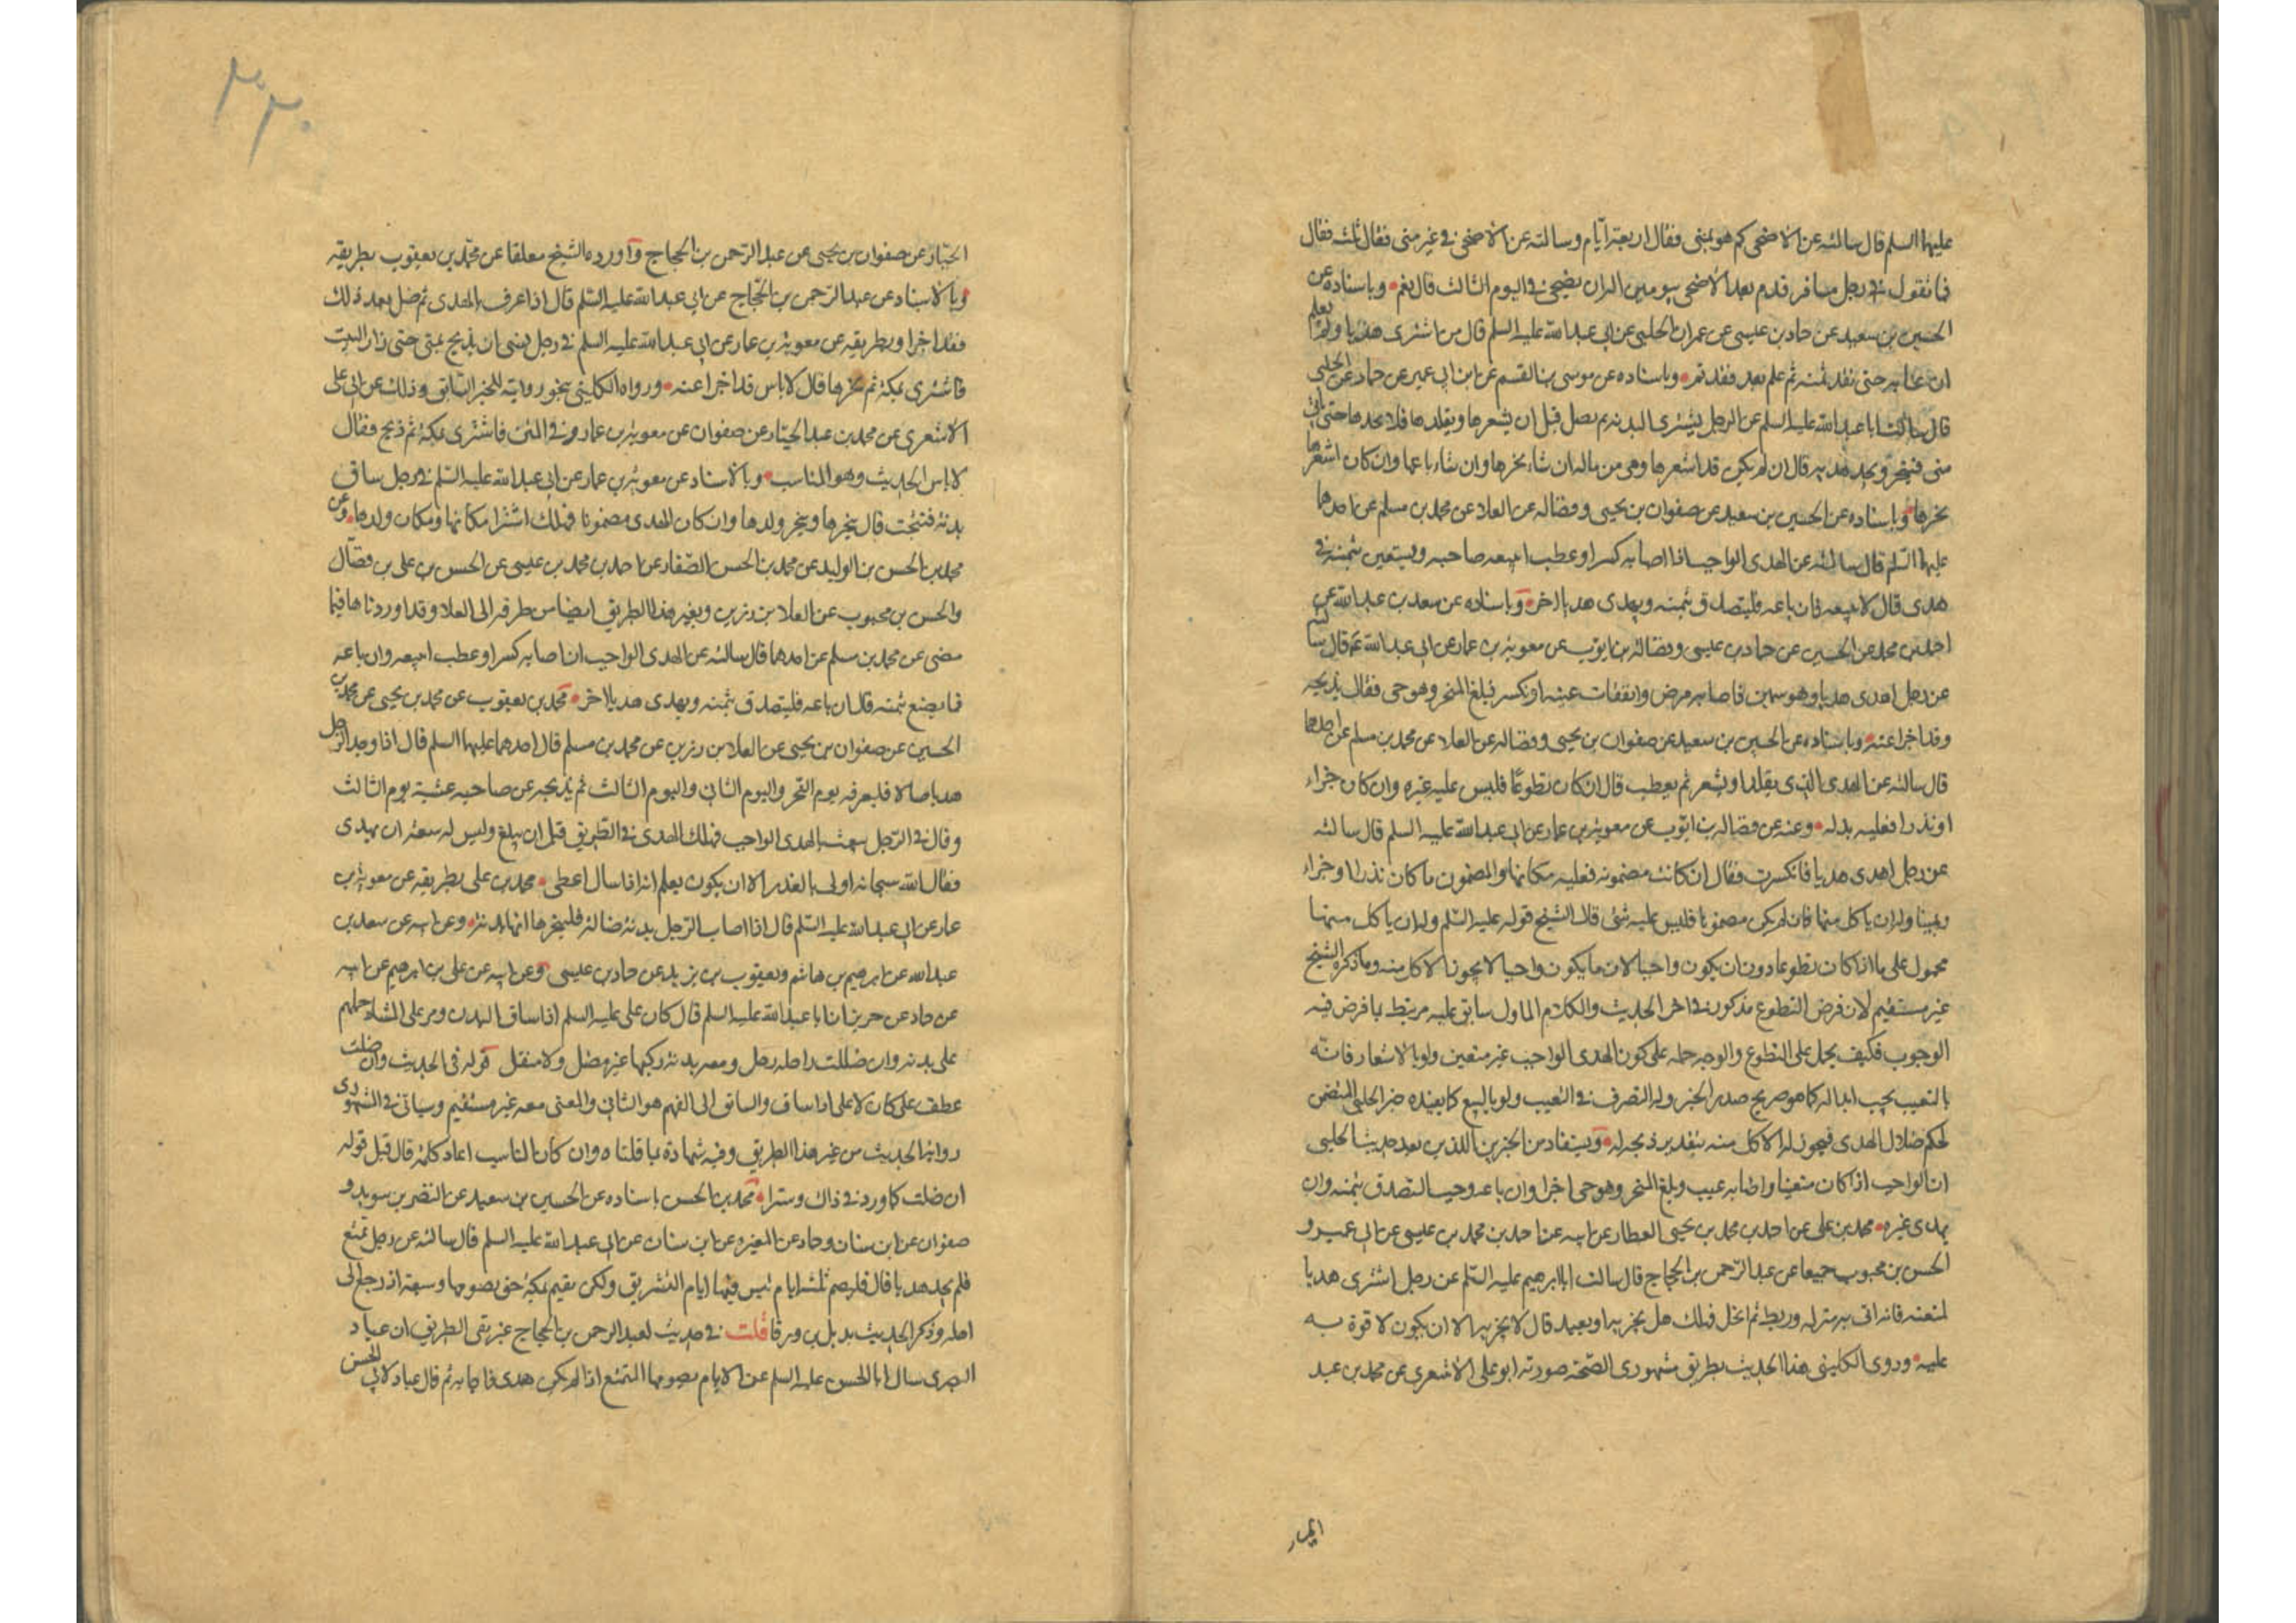 عليهما السلم قال سالته عن الاضحى كم هو بمنى فقال اربعة ايام وسالته عن الاضحى في غير منى فقال ثلثه فقال
فما تقول في رجل مسافر قدم بعد الاضحى بيومين اله ان يضحى في اليوم الثالث قال نعم وباسناده عن
الحسين بن سعيد عن حماد بن عيسى عن عمران الحلبي عن ابي عبد الله عليه السلم قال من اشترى هديا ولم يعلم
ان به عيبا حتى نقد ثمنه ثم علم بعد فقد تم وباسناده عن موسى بن القسم عن ابن ابي عمير عن حماد عن الحلبي
قال سالت ابا عبد الله عليه السلم عن الرجل يشترى البدنة ثم تضل قبل ان يشعرها ويقلدها فلا يجدها حتى ياتي
منى فينحر ويجد هديه قال ان لم يكن قد اشعرها وهى من ماله ان شاء نحرها وان شاء باعها وان كان اشعرها
نحرها وباسناده عن الحسين بن سعيد عن صفوان بن يحيى وفضاله عن العلا عن محمد بن مسلم عن احدهما
عليهما السلم قال سالته عن الهدى الواجب اذا اصابه كسر او عطب ايبيعه صاحبه ويستعين بثمنه في
هدى قال لا يبيعه فان باعه فليتصدق بثمنه ويهدى هديا اخر وباسناده عن سعد بن عبد الله عن
احمد بن محمد عن الحسين عن حماد بن عيسى وفضاله بن ايوب عن معوية بن عمار عن ابي عبد الله ع قال سالته
عن رجل اهدى هديا وهو سمين فاصابه مرض وانفقات عينه او انكسر فبلغ المنحر وهو حى فقال يذبحه
وقد اجزا عنه وباسناده عن الحسين بن سعيد عن صفوان بن يحيى وفضاله عن العلا عن محمد بن مسلم عن احدهما
قال سالته عن الهدى الذى يقلد او يشعر ثم يعطب قال ان كان تطوعا فليس عليه غيره وان كان جزاء
او نذرا فعليه بدله وعنه عن فضاله بن ايوب عن معوية بن عمار عن ابي عبد الله عليه السلم قال سالته
عن رجل اهدى هديا فانكسرت فقال ان كانت مضمونه فعليه مكانها والمضمون ما كان نذرا او جزاء
ويمينا وله ان ياكل منها فان لم يكن مضمونا فليس عليه شئ قال الشيخ قوله عليه السلم وله ان ياكل منها
محمول على ما اذا كان تطوعا دون ان يكون واجبا لان ما يكون واجبا لا يجوز الاكل منه وما ذكره الشيخ
غير مستقيم لان فرض التطوع مذكور في اخر الحديث والكلام الماول سابق عليه مرتبط بما فرض فيه
الوجوب فكيف يحمل على التطوع والوجه حمله على كون الهدى الواجب غير متعين ولو بالاشعار فانه
بالتعيب يجب ابداله كما هو صريح صدر الخبر وله التصرف في التعيب ولو بالبيع كما يفيده خبر الحلبي المتضمن
لحكم ضلال الهدى فيجوز له الاكل منه بتقدير ذبحه له ويستفاد من الخبرين اللذين بعد حديث الحلبي
ان الواجب اذا كان متعينا واصابه عيب وبلغ المنحر وهو حى اجزا وان باعه وجب التصدق بثمنه وان
يهدى غيره محمد بن على عن احمد بن محمد بن يحيى العطار عن ابيه عن احمد بن محمد بن عيسى عن ابي عمير و
الحسن بن محبوب جميعا عن عبد الرحمن بن الحجاج قال سالت ابا ابرهيم عليه السلم عن رجل اشترى هديا
لمتعته فاتى به منزله وربطه ثم انحل فهلك هل يجزيه او يعيد قال لا يجزيه الا ان يكون لا قوة به
عليه وروى الكليني هذا الحديث بطريق مشهورى الصحة صورته ابو على الاشعرى عن محمد بن عبد
الجبار عن صفوان بن يحيى عن عبد الرحمن بن الحجاج واورده الشيخ معلقا عن محمد بن يعقوب بطريقه
وبالاسناد عن عبد الرحمن بن الحجاج عن ابي عبد الله عليه السلم قال اذا عرف بالهدى ثم ضل بعد ذلك
فقد اجزا وبطريقه عن معوية بن عمار عن ابي عبد الله عليه السلم في رجل نسى ان يذبح بمنى حتى زار البيت
فاشترى بمكة ثم نحرها قال لا باس قد اجزا عنه ورواه الكليني بنحو روايته للخبر السابق وذلك عن ابي على
الاشعرى عن محمد بن عبد الجبار عن صفوان عن معوية بن عمار وفي المتن فاشترى بمكة ثم ذبح فقال
لا باس الحديث وهو المناسب وبالاسناد عن معوية بن عمار عن ابي عبد الله عليه السلم في رجل ساق
بدنة فنتجت قال ينحرها وينحر ولدها وان كان الهدى مضمونا فهلك اشترا مكانها ومكان ولدها وعن
محمد بن الحسن بن الوليد عن محمد بن الحسن الصفار عن احمد بن محمد بن عيسى عن الحسن بن على بن فضال
والحسن بن محبوب عن العلا بن رزين وبغير هذا الطريق ايضا من طرقه الى العلا وقد اوردناها فيما
مضى عن محمد بن مسلم عن احدهما قال سالته عن الهدى الواجب ان اصابه كسر او عطب ايبيعه وان باعه
فما يصنع بثمنه قال ان باعه فليتصدق بثمنه ويهدى هديا اخر محمد بن يعقوب عن محمد بن يحيى عن محمد بن
الحسين عن صفوان بن يحيى عن العلا بن رزين عن محمد بن مسلم قال احدهما عليهما السلم قال اذا وجد الرجل
هديا ضالا فليعرفه يوم النحر واليوم الثاني واليوم الثالث ثم يذبحه عن صاحبه عشية يوم الثالث
وقال في الرجل يبعث بالهدى الواجب فهلك الهدى في الطريق قبل ان يبلغ وليس له سعة ان يهدى
فقال الله سبحانه اولى بالعذر الا ان يكون يعلم انه اذا سال اعطى محمد بن على بطريقه عن معوية بن
عمار عن ابي عبد الله عليه السلم قال اذا اصاب الرجل بدنة ضالة فلينحرها انها بدنة وعن ابيه عن سعد بن
عبد الله عن ابرهيم بن هاشم ويعقوب بن يزيد عن حماد بن عيسى وعن ابيه عن على بن ابرهيم عن ابيه
عن حماد عن حريز ان ابا عبد الله عليه السلم قال كان على عليه السلم اذا ساق البدن ومر على المشاة حملهم
على بدنه وان ضللت راحلة رجل ومعه بدنة ركبها غير مضل ولا مثقل قوله في الحديث وان ضلت
عطف على كان لا على اذا ساق والسابق الى الفهم هو الثاني والمعنى معه غير مستقيم وسياتي في المشهورى
رواية الحديث من غير هذا الطريق وفيه شهادة بما قلناه وان كان المناسب اعادة كلمة قال قبل قوله
ان ضلت كما ورد في ذاك وسترا محمد بن الحسن باسناده عن الحسين بن سعيد عن النضر بن سويد و
صفوان عن ابن سنان وحماد عن المغيره عن ابن سنان عن ابي عبد الله عليه السلم قال سالته عن رجل تمتع
فلم يجد هديا قال فليصم ثلثة ايام ليس فيها ايام التشريق ولكن يقيم بمكة حتى يصومها وسبعة اذا رجع الى
اهله وذكر الحديث بديل بن ورقا قلت في حديث لعبد الرحمن بن الحجاج غير نقى الطريق ان عباد
البصرى سال ابا الحسن عليه السلم عن الايام يصومها المتمتع اذا لم يكن هدى فاجابه ثم قال عباد لابي الحسن